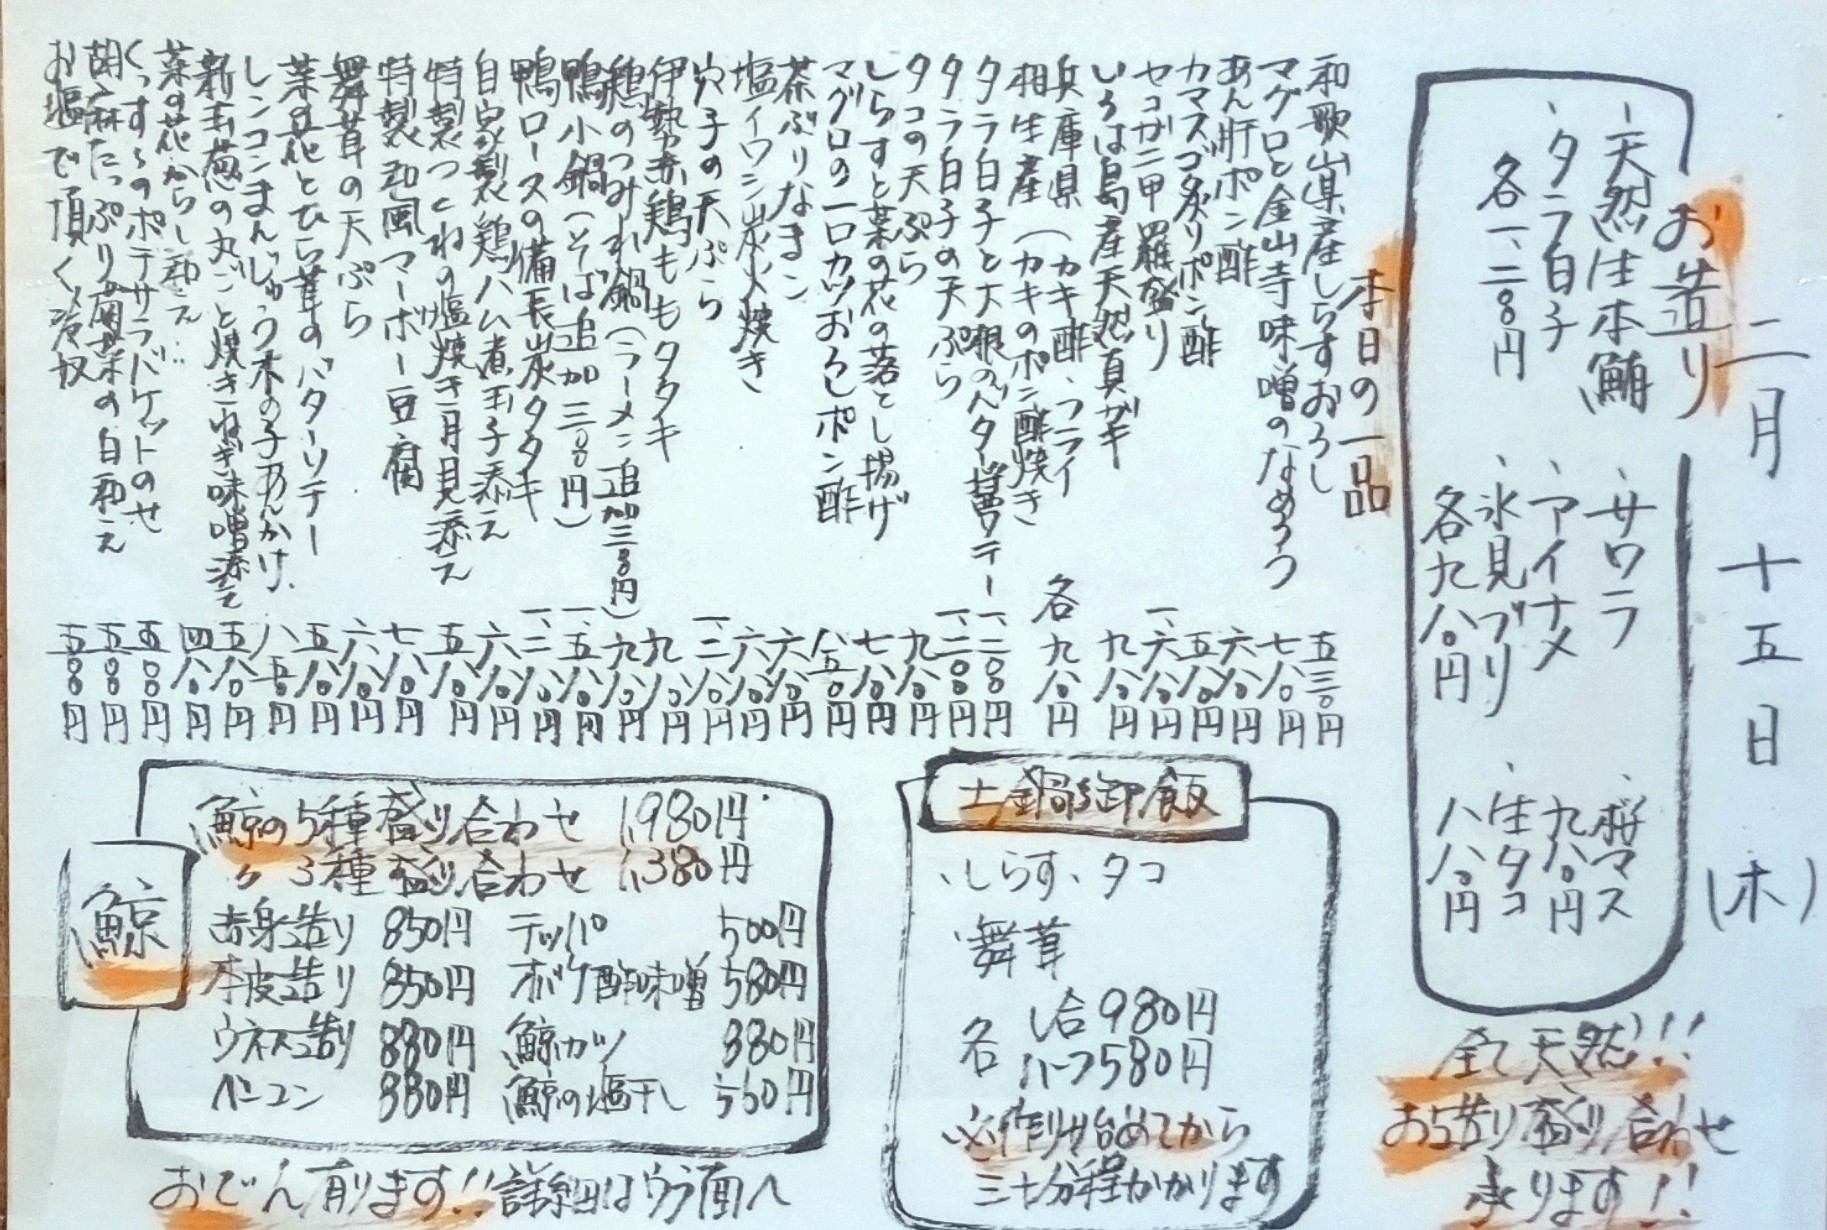 二月十五日(木)
お造り
、天然生本鮪
、タラ白子
各一、二八〇円
、サワラ
、アイナメ
、氷見ブリ
各九八〇円
、桜マス
九八〇円
、生タコ
八八〇円
全て天然!!!
お造り盛り合わせ
承ります!!
本日の一品
和歌山県産しらすおろし 五三〇円
マグロと金山寺味噌のなめろう 七八〇円
あん肝ポン酢 六八〇円
カマスゴ炙りポン酢 五八〇円
セコガニ甲羅盛り 一、六八〇円
いろは島産天然真ガキ 九八〇円
兵庫県(カキ酢、フライ
相生産(カキのポン酢焼き 各九八〇円
タラ白子と大根のバター醤油ソテー 一、二八〇円
タラ白子の天ぷら 一、二八〇円
タコの天ぷら 九八〇円
しらすと菜の花の落とし揚げ 七八〇円
マグロの一口カツおろしポン酢 八五〇円
茶ぶりなまこ 六八〇円
塩イワシ炭火焼き 六八〇円
穴子の天ぷら 一、二八〇円
伊勢赤鶏ももタタキ 九八〇円
鶏のつみれ鍋(ラーメン追加三〇〇円) 九八〇円
鴨小鍋(そば追加三〇〇円) 一、五八〇円
鴨ロースの備長炭タタキ 一、二八〇円
自家製鶏ハム煮玉子添え 六八〇円
特製つくねの塩焼き月見添え 五八〇円
特製和風マーボー豆腐 七八〇円
舞茸の天ぷら 六八〇円
菜の花とひら茸のバターソテー 五八〇円
レンコンまんじゅう木の子あんかけ 八五〇円
新玉葱の丸ごと焼きねぎ味噌添え 五八〇円
菜の花からし和え 四八〇円
くっすんのポテサラバケットのせ 五〇〇円
胡麻たっぷり腐菜の白和え 五〇〇円
お塩で頂く冷奴 五〇〇円
土鍋御飯
、しらす、タコ
、舞茸
各 一合980円
ハーフ580円
※作り始めてから
三十分程かかります
鯨
鯨の5種盛り合わせ 1,980円
〃 3種盛り合わせ 1,380円
赤身造り 850円 テッパ 500円
本皮造り 850円 オバケ酢味噌 580円
ウネス造り 880円 鯨カツ 880円
ベーコン 880円 鯨の塩干し 560円
おでん有ります!!詳細はウラ面へ